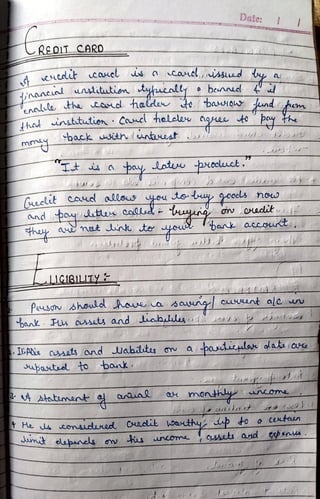 Date: / /
CREDIT CARD
A credit card is a card issued by a
financial institution typically a banned & it
enable the card holder to barrow fund from
that institution. Card holder agree to pay the
money back with interest.
"It is a pay later product."
Credit card allows you to buy goods now
and pay letter called - buying on credit
They are not link to your bank account.
ELIGIBILITY :-
Person should have a saving/ current a/c in
bank. His assets and liabilities
assets and liabilites on a particular date are
reparted to bank.
A statement of anual or monthly income
He is considered Credit worthy up to a certain
limit depends on his income, assets and expenses.